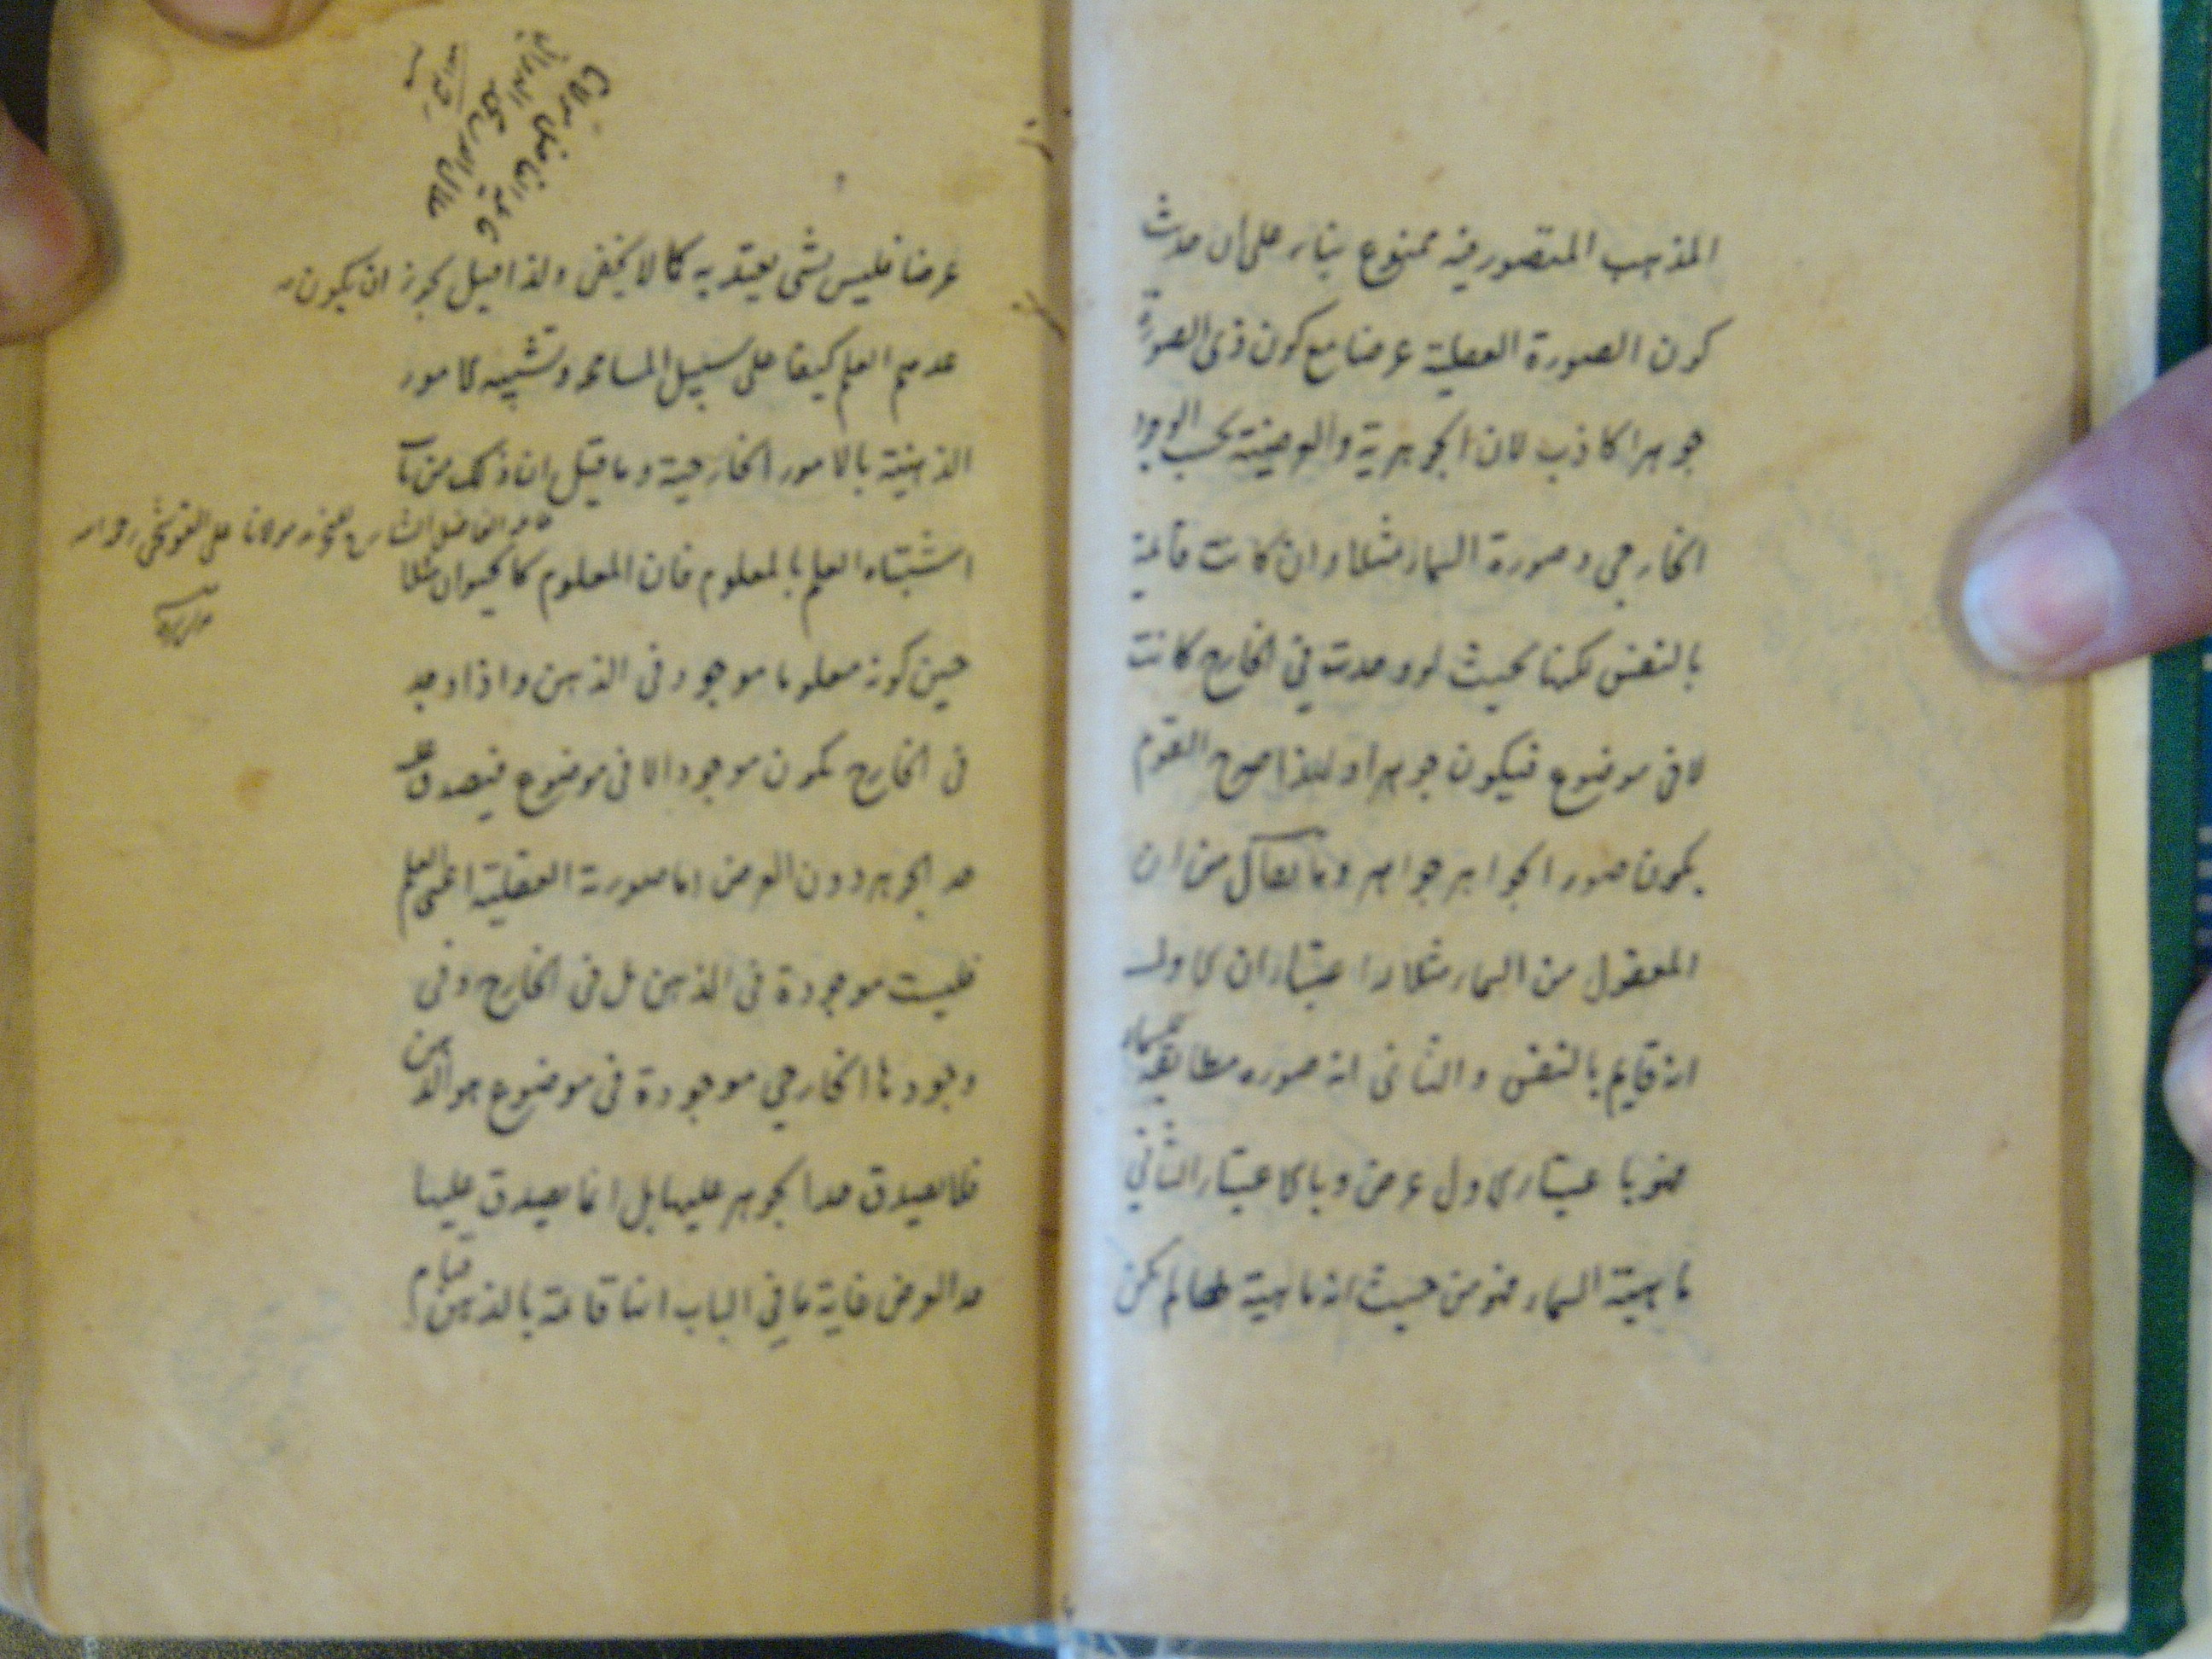 المذهب المتصور فيه ممنوع بناء على ان حديث
كون الصورة العقلية عرضا مع كون ذى الصورة
جوهرا كاذب لان الجوهرية والعرضية بحسب الوجود
الخارجي وصورة السماء مثلا وان كانت قائمة
بالنفس لكنها بحيث لو وجدت في الخارج كانت
لا في موضوع فيكون جوهرا ولهذا صرح القوم
بكون صور الجواهر جواهر وما يقال من ان
المعقول من السماء مثلا له اعتباران الاول
انه قايم بالنفس والثانى انه صوره مطابقة للسماء
فهو باعتبار الاول عرض وبالاعتبار الثاني
ماهية السماء فهو من حيث انه ماهية لها لم يكن
عرضا فليس بشى يعتد به كما لا يخفى ولذا قيل يجوز ان يكون
عدهم العلم كيفا على سبيل المسامحة وتشبيه الامور
الذهنية بالامور الخارجية وما قيل ان ذلك من باب
اشتباه العلم بالمعلوم فان المعلوم كالحيوان مثلا
حين كونه معلوما موجود فى الذهن واذا وجد
فى الخارج يكون موجودا لا فى موضوع فيصدق عليه
حد الجوهر دون العرض اما صورته العقلية اعنى العلم
فليست موجودة فى الذهن بل فى الخارج وفى
وجودها الخارجي موجودة فى موضوع هو الذهن
فلا يصدق حد الجوهر عليها بل انما يصدق عليها
حد العرض غاية ما في الباب انها قائمة بالذهن قيام